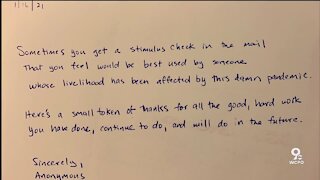 1/16/21
Sometimes you get a stimulus check in the mail
that you feel would be best used by someone
whose livelihood has been affected by this damn pandemic.
Here's a small token of thanks for all the good, hard work
you have done, continue to do, and will do in the future.
Sincerely,
Anonymous
9
WCPO